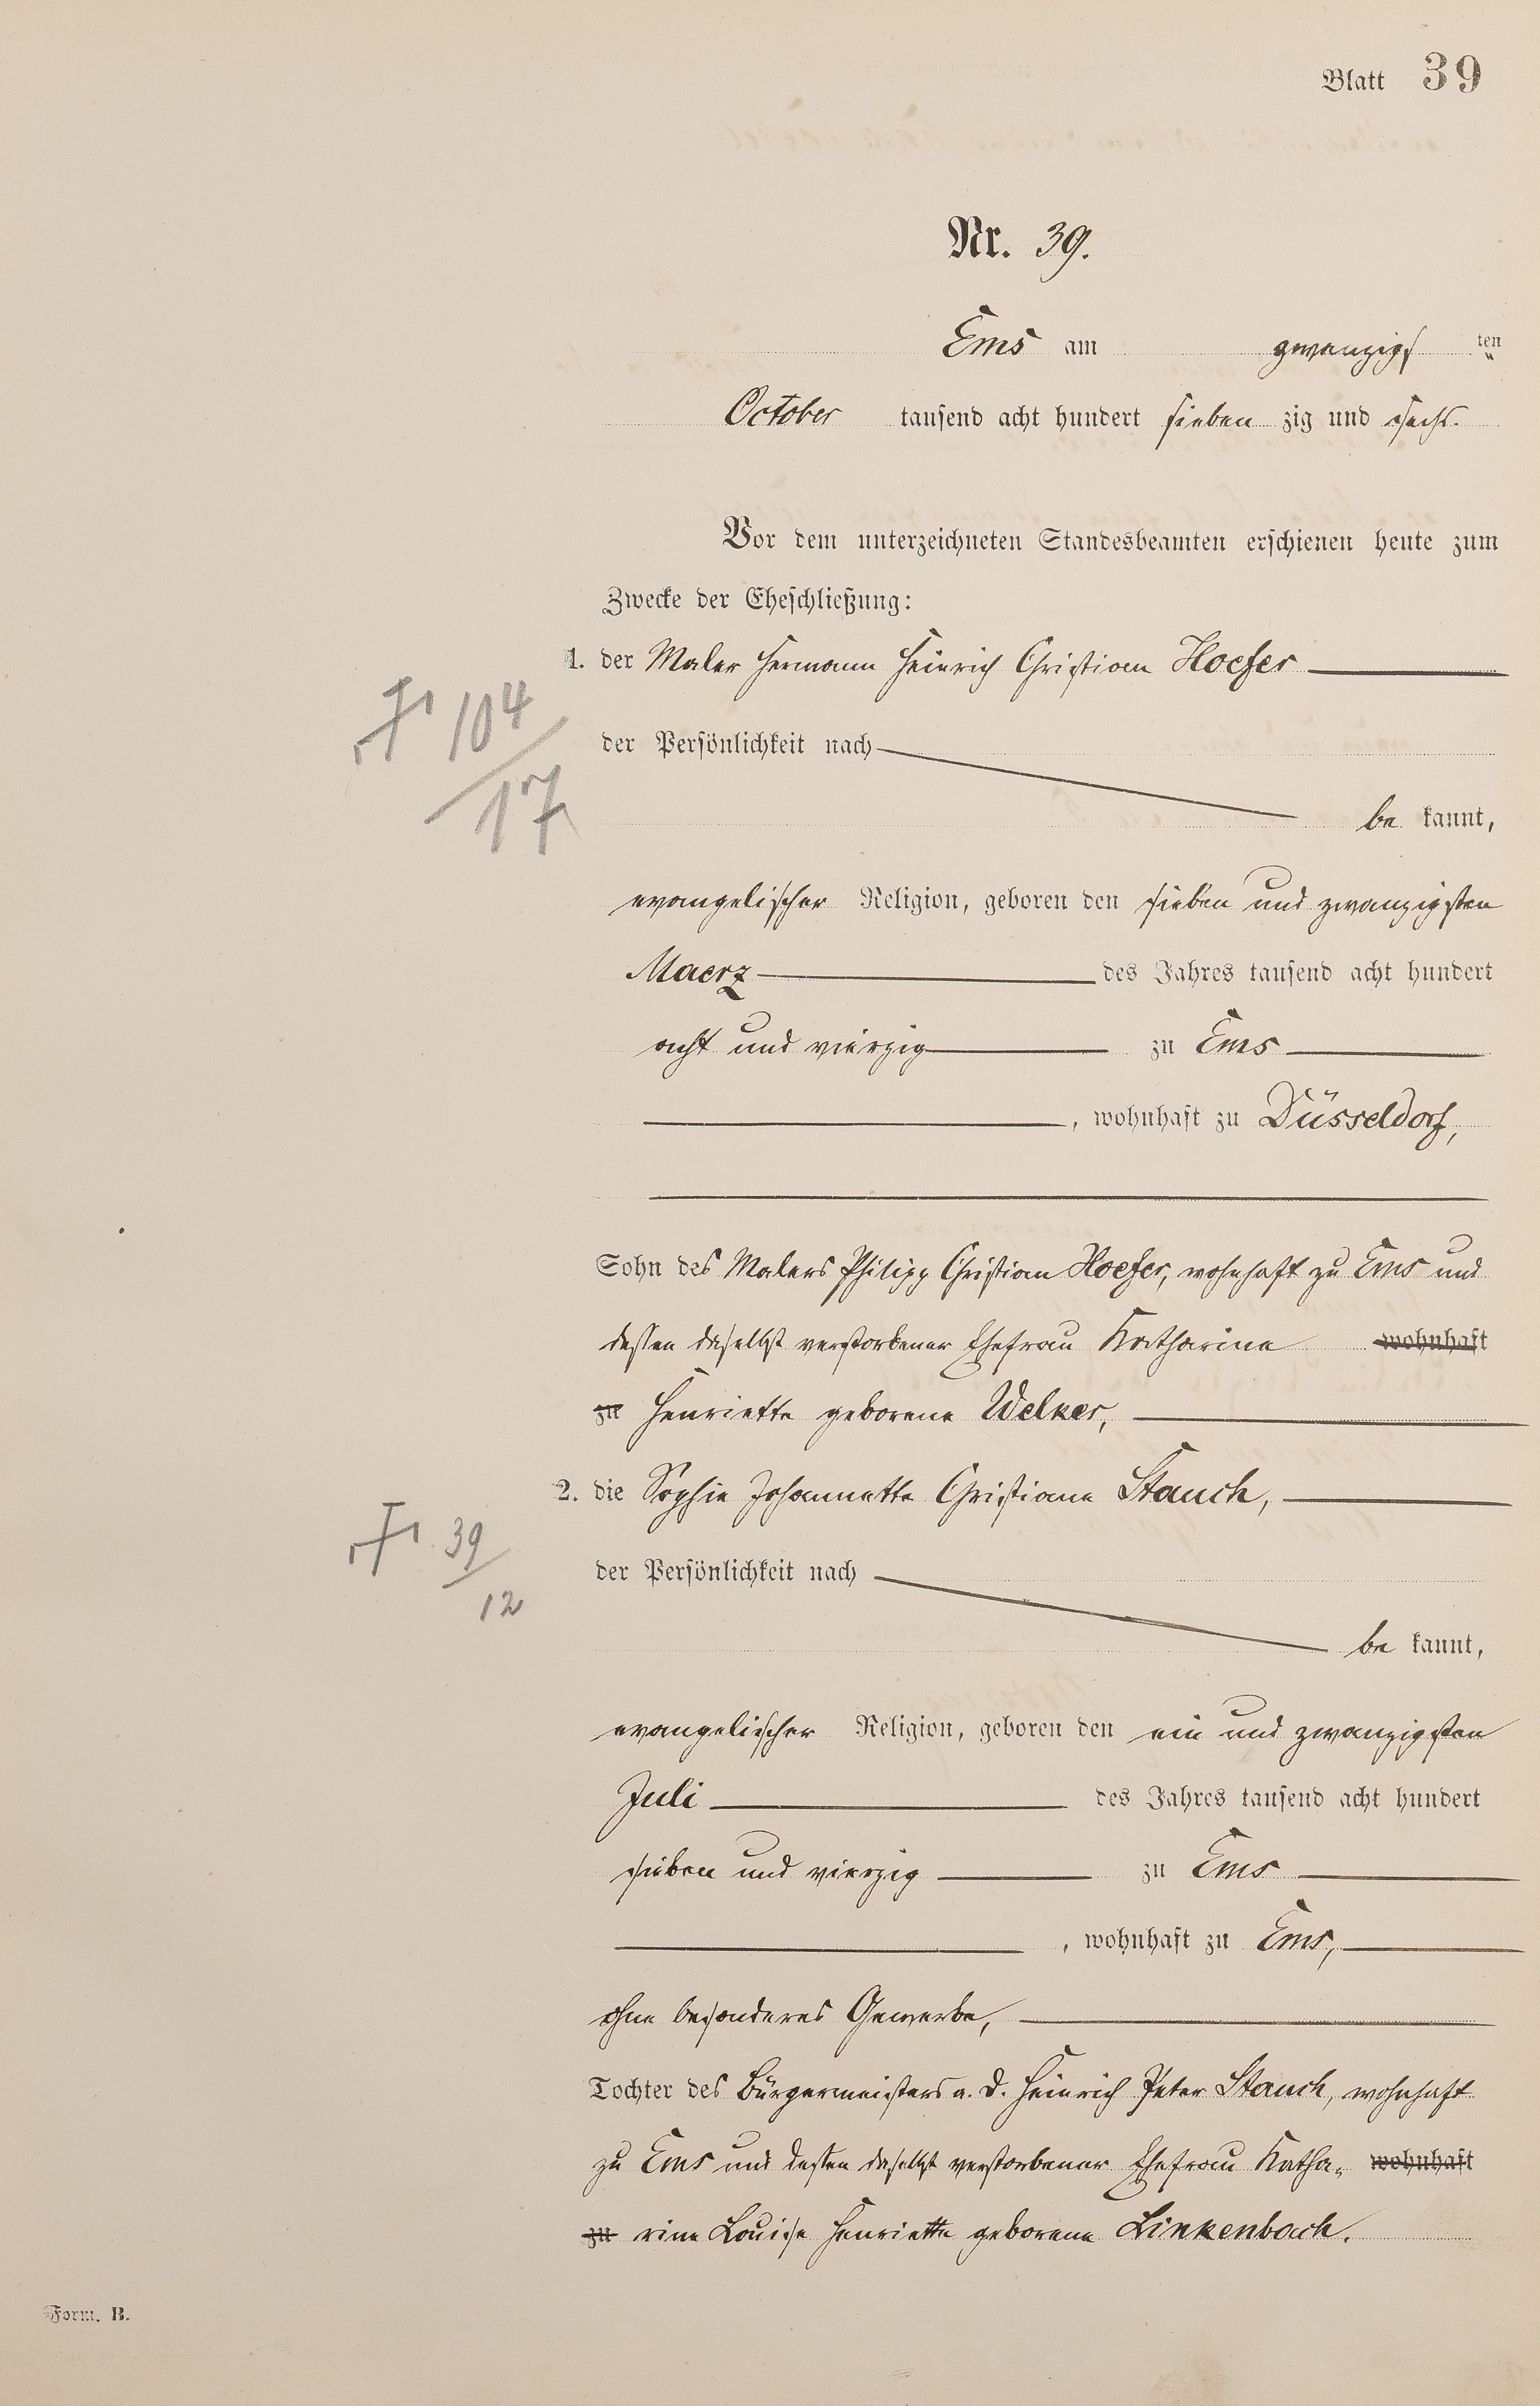 Blatt 39
Nr. 39.
Ems am zwanzigs ten
October tausend acht hundert sieben zig und sechs.
Vor dem unterzeichneten Standesbeamten erschienen heute zum
Zwecke der Eheschließung:
1. der Maler Hermann Heinrich Christian Hoefer
der Persönlichkeit nach
be kannt,
evangelischer Religion, geboren den sieben und zwanzigsten
Maerz des Jahres tausend acht hundert
acht und vierzig zu Ems
, wohnhaft zu Düsseldorf,
Sohn des Malers Philipp Christian Hoefer, wohnhaft zu Ems und
dessen daselbst verstorbener Ehefrau Katharina wohnhaft
zu Henriette geborene Welker,
2. die Sophie Johannette Christiane Stauch,
der Persönlichkeit nach
be kannt,
evangelischer Religion, geboren den ein und zwanzigsten
Juli des Jahres tausend acht hundert
sieben und vierzig zu Ems
, wohnhaft zu Ems,
ohne besonderes Gewerbe,
Tochter des Bürgermeisters a. D. Heinrich Peter Stauch, wohnhaft
zu Ems und dessen daselbst verstorbener Ehefrau Katha- wohnhaft
zu rine Louise Henriette geborene Linkenbach.
104
17
39
12
Form. B.